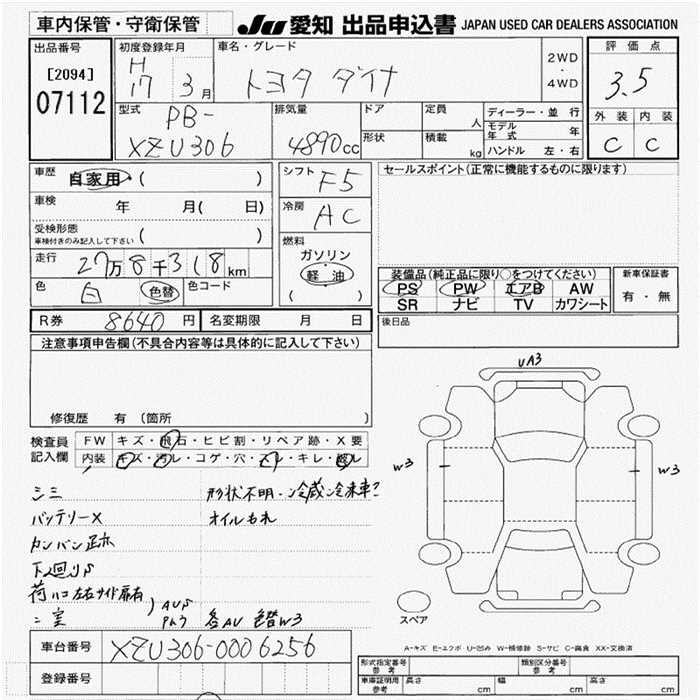 車内保管・守衛保管
JU 愛知 出品申込書 JAPAN USED CAR DEALERS ASSOCIATION
出品番号
[2094]
07112
初度登録年月
H 17 3月
車名・グレード
トヨタ ダイナ
2WD
・
4WD
評価点
3.5
外装 内装
C C
型式
PB-
XZU306
排気量
4890cc
ドア
形状
定員 人
積載 kg
ディーラー・並行
モデル年式 年
ハンドル 左・右
車歴 自家用・( )
車検 年 月( 日)
受検形態
車検付きのみ記入して下さい ( )
走行 27万8千318km
色 白 色替 色コード
シフト F5
冷房 AC
燃料
ガソリン
軽油
( )
セールスポイント(正常に機能するものに限ります)
装備品(純正品に限り○をつけてください)
PS PW エアB AW
SR ナビ TV カワシート
新車保証書
有・無
R券 8640円 名変期限 月 日
後日品
注意事項申告欄(不具合内容等は具体的に記入して下さい)
修復歴 有(箇所 )
検査員記入欄
FW キズ・飛石・ヒビ割・リペア跡・X要
内装 キズ・汚レ・コゲ・穴・スレ・キレ・
シミ 形状不明・冷蔵冷凍車?
バッテリーX オイルもれ
カンバン跡
下廻りS
荷ハコ左右サイド扉有
二室
AUS
各AU 色替W3
UA3
W3
W3
スペア
A-キズ E-エクボ U-凹み W-補修跡 S-サビ C-腐食 XX-交換済
車台番号 XZU306-0006256
登録番号
形式指定番号 参考
類別区分番号 参考
車庫証明用 参考 長さ cm 幅 cm 高さ cm